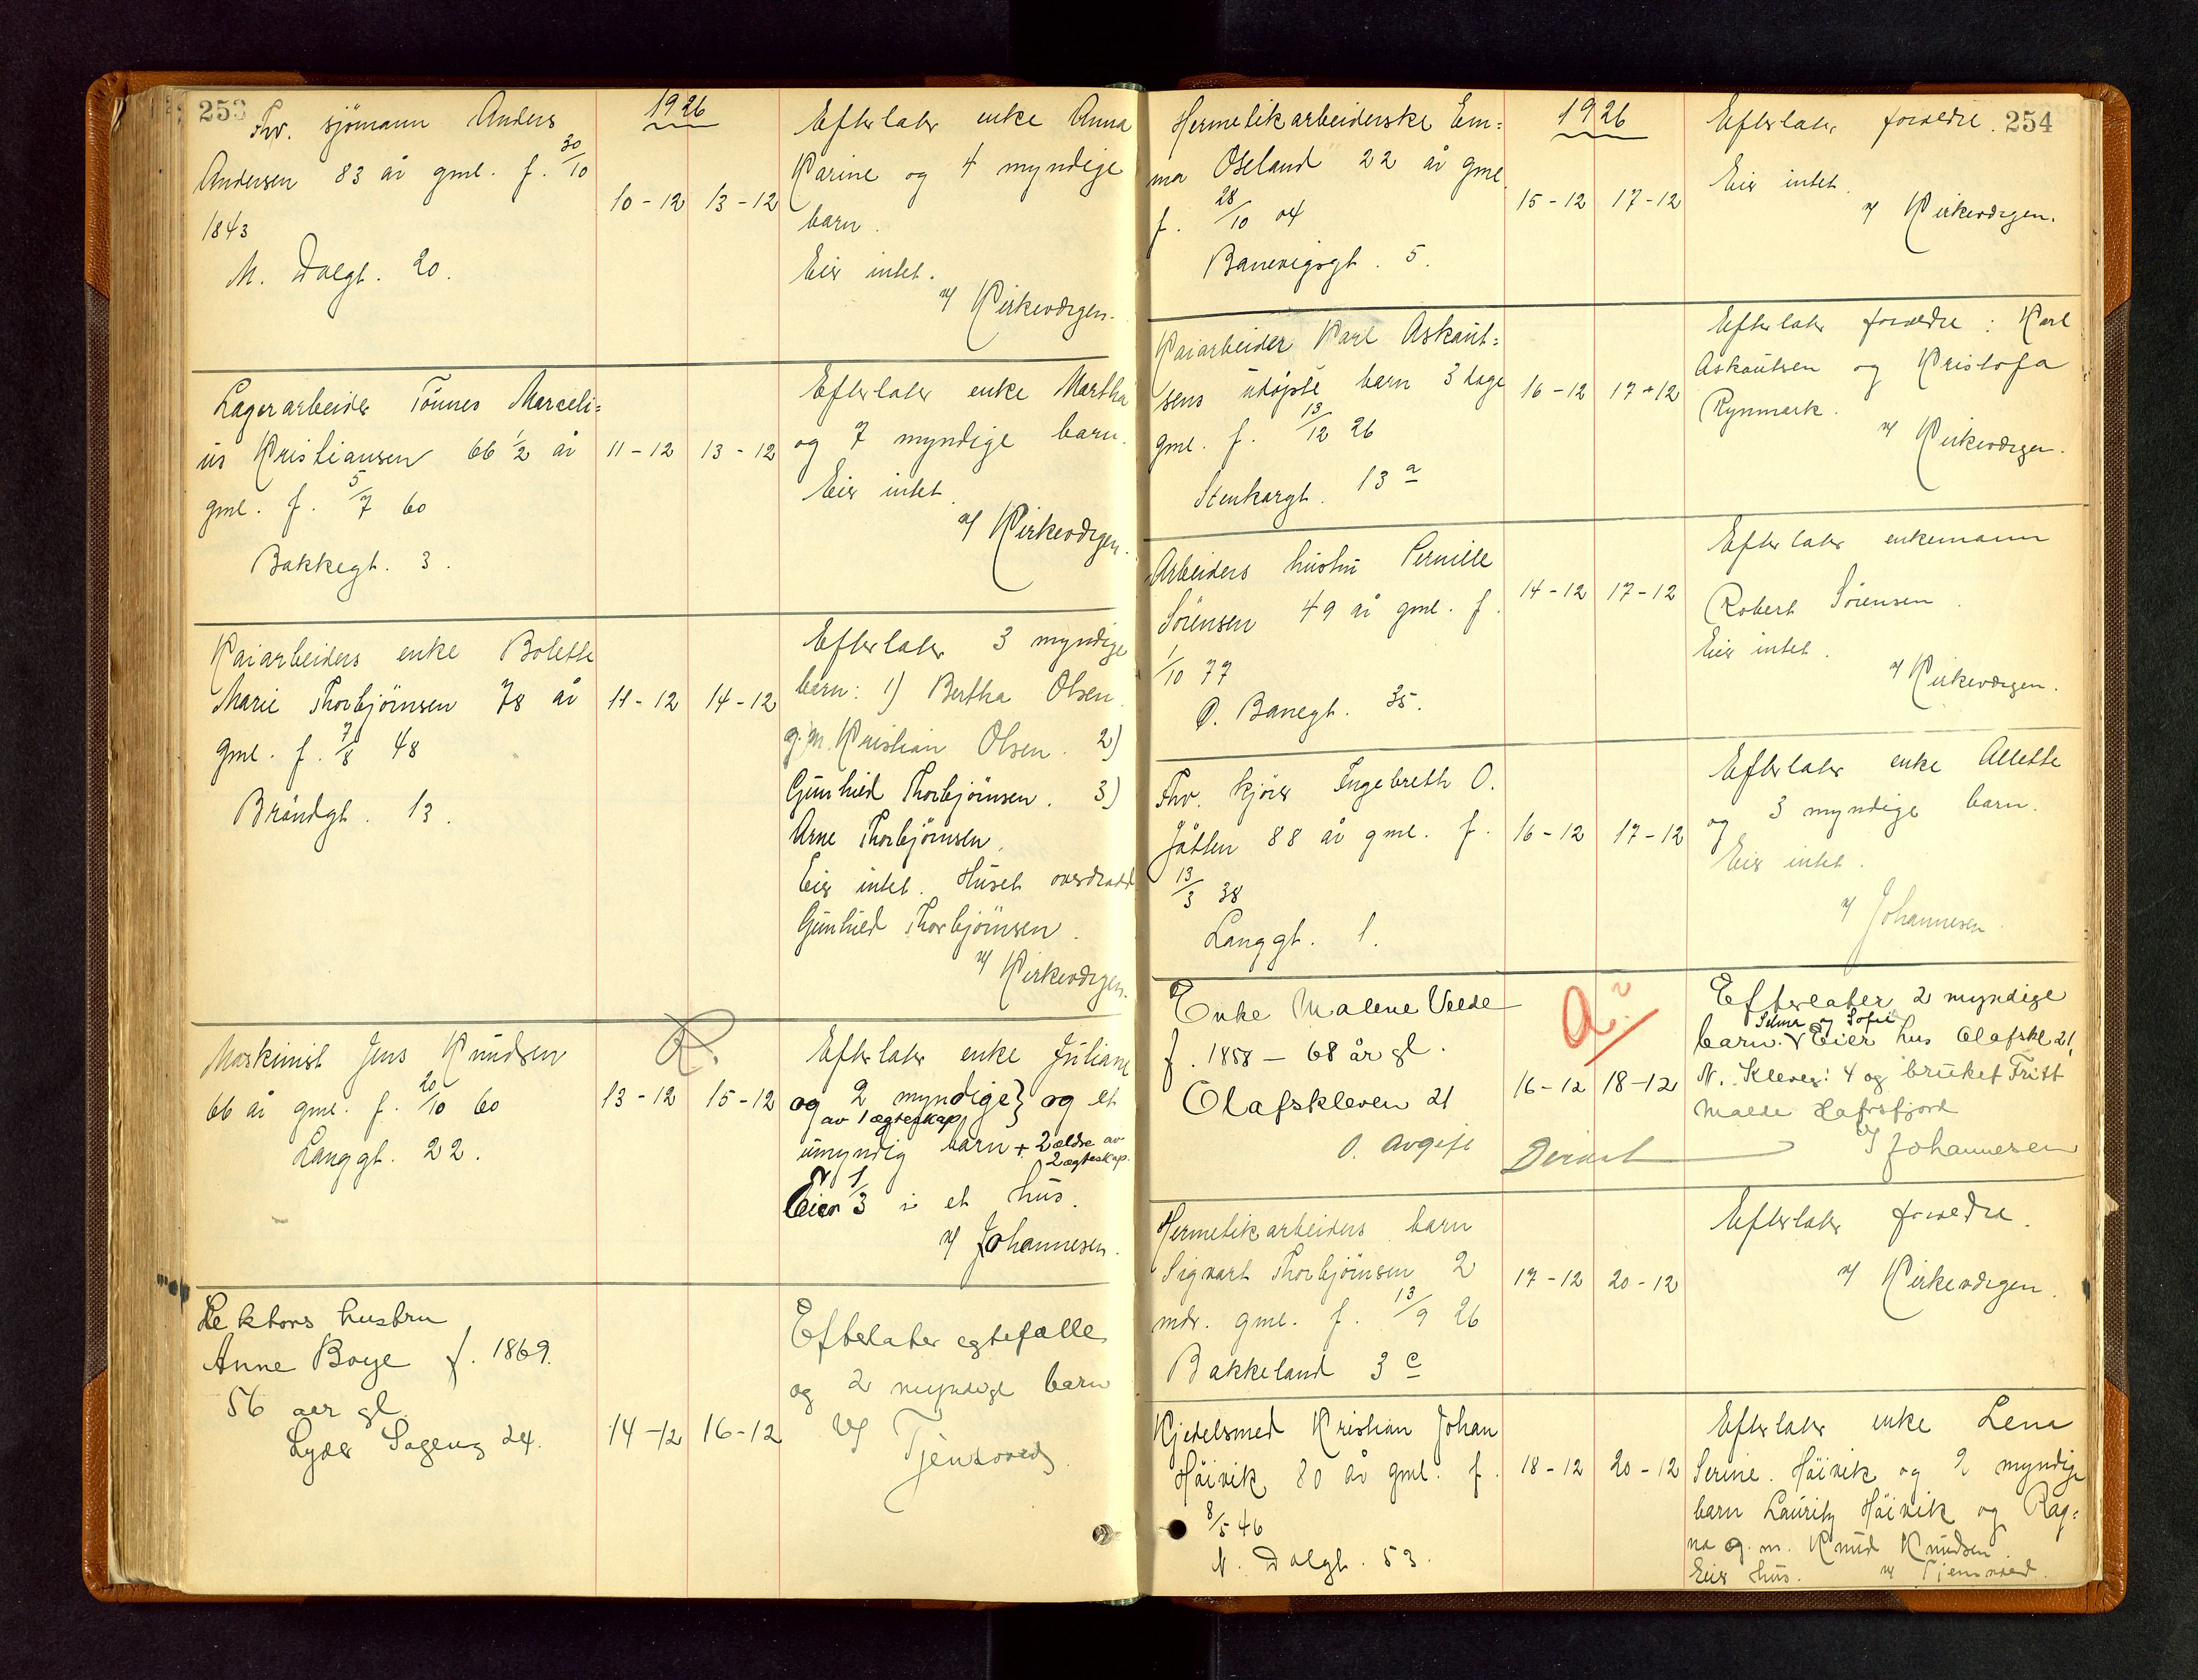 253
1926
Fhv. sjömann Anders
Andersen 83 år gml. f. 30/10
1843
M. Dalgt. 20.
10-12 13-12
Efterlater enke Anna
Karine og 4 myndige
barn.
Eier intet.
v/ Kirkevergen.
Lagerarbeider Tönnes Marceli=
us Kristiansen 66 ½ år
gml. f. 5/7 60
Bakkegt. 3.
11-12 13-12
Efterlater enke Martha
og 7 myndige barn.
Eier intet.
v/ Kirkevergen.
Kaiarbeiders enke Bolette
Marie Thorbjörnsen 78 år
gml. f. 7/8 48
Bröndgt. 13.
11-12 14-12
Efterlater 3 myndige
barn: 1) Bertha Olsen
g. m. Kristian Olsen. 2)
Gunhild Thorbjörnsen. 3)
Arne Thorbjörnsen.
Eier intet. Huset overdradd
Gunhild Thorbjörnsen.
v/ Kirkevergen.
Maskinist Jens Knudsen
66 år gml. f. 20/10 60
Langgt. 22.
R.
13-12 15-12
Efterlater enke Juliane
og 2 myndige} og et
av 1 ægteskap
umyndig barn + 2 ældre av
2 ægteskap.
Eier 1/3 i et hus.
v/ Johannesen.
Lektors hustru
Anne Boye f. 1869.
56 aer gl.
Lyder Sagens 24.
14-12 16-12
Efterlater egtefælle
og 2 myndige barn
v/ Tjensvoed
254
1926
Hermetikarbeiderske Em=
ma Öseland 22 år gml.
f. 28/10 04
Banevigsgt. 5.
15-12 17-12
Efterlater forældre.
Eier intet.
v/ Kirkevergen.
Kaiarbeider Karl Askaut=
sens udöpte barn 3 dage
gml. f. 13/12 26
Stenkargt. 13 a
16-12 17-12
Efterlater forældre: Karl
Askautsen og Kristofa
Rynmark.
v/ Kirkevergen.
Arbeiders hustru Pernille
Sörensen 49 år gml. f.
1/10 77
Ö. Banegt. 35.
14-12 17-12
Efterlater enkemann
Robert Sörensen.
Eier intet.
v/ Kirkevergen.
Fhv. kjörer Ingebreth O.
Jåtten 88 år gml. f.
13/3 38
Langgt. 1.
16-12 17-12
Efterlater enke Allette
og 3 myndige barn.
Eier intet.
v/ Johannesen
Enke Malene Velde
f. 1858 - 68 år gl.
Olafskleven 21
O. avgift Direct
16-12 18-12
Efterlater 2 myndige
Selma og Sofie
barn. Eier hus Olafskl 21,
N. Klevg: 4 og bruket Fritt
Malde Hafrsfjord
v/ Johannesen
Hermetikarbeiders barn
Sigvart Thorbjörnsen 2
mdr. gml. f. 13/9 26
Bakkeland 3 c
17-12 20-12
Efterlater forældre.
v/ Kirkevergen.
Kjedelsmed Kristian Johan
Höivik 80 år gml. f.
8/5 46
N. Dalgt. 53.
18-12 20-12
Efterlater enke Lena
Serine Höivik og 2 myndige
barn Lauritz Höivik og Rag=
na g. m. Knud Knudsen.
Eier hus. v/ Tjensvoed.